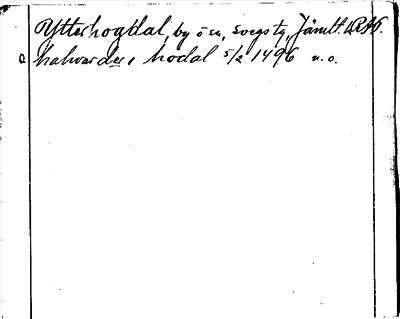 Ytterhogdal, by o sn, Svegs tg, Jämtl. URAP.
a halvardz i hodal 5/2 1496 u. o.